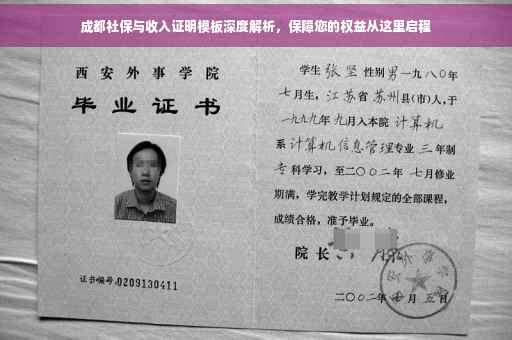 成都社保与收入证明模板深度解析，保障您的权益从这里启程
西安外事学院
毕业证书
证书编号:0209130411
学生 张坚 性别 男 一九八〇年
七月生，江苏省 苏州县(市)人,于
一九九九年 九月入本院 计算机
系 计算机信息管理专业 三 年制
专科学习，至二〇〇二年 七月修业
期满，学完教学计划规定的全部课程，
成绩合格，准予毕业。
院长
二〇〇二年 七月 五日